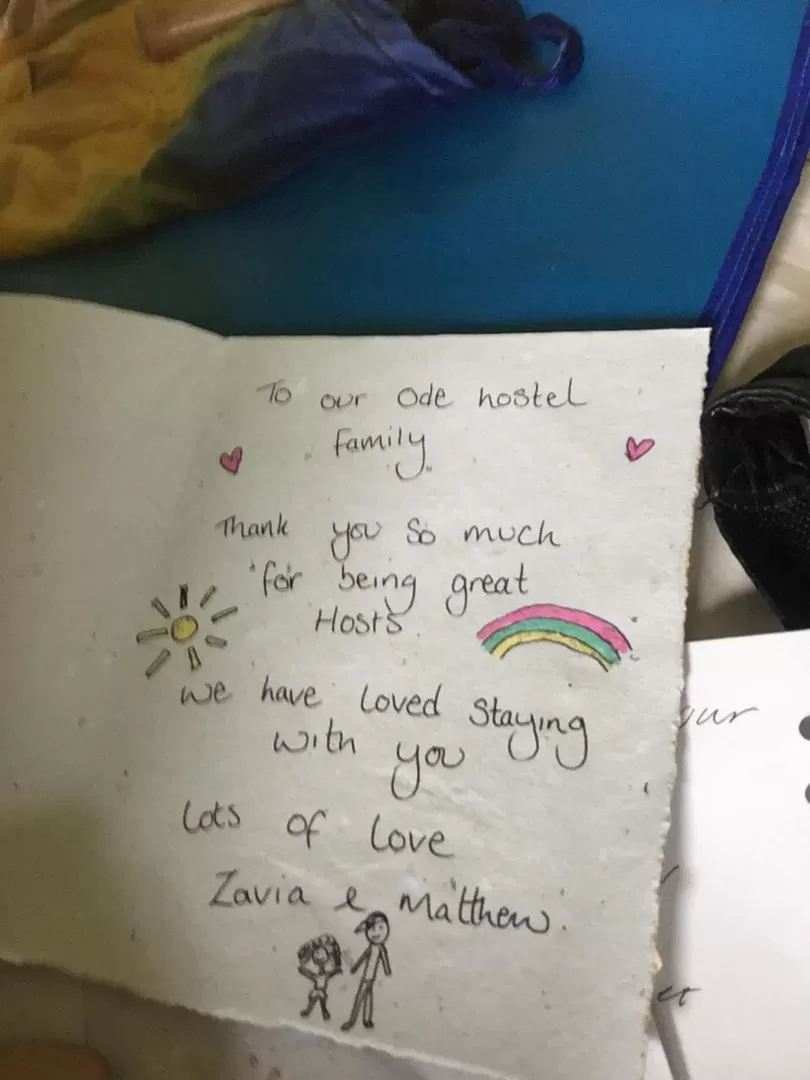 To our Ode hostel
family.
Thank you so much
for being great
Hosts.
We have loved staying
with you
Lots of love
Zavia & Matthew.
our